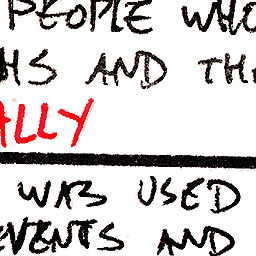 PEOPLE WHO
HS AND TH
ALLY
WAS USED
EVENTS AND